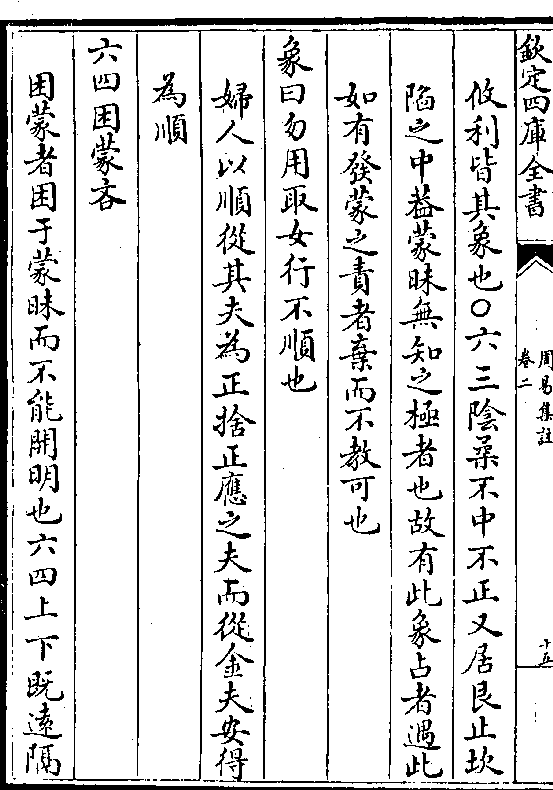 欽定四庫全書
周易集註
卷二
十五
攸利皆其象也○六三陰柔不中不正又居艮止坎
陷之中蓋蒙昧無知之極者也故有此象占者遇此
如有發蒙之責者棄而不教可也
象曰勿用取女行不順也
婦人以順從其夫為正捨正應之夫而從金夫安得
為順
六四困蒙吝
困蒙者困于蒙昧而不能開明也六四上下既遠隔